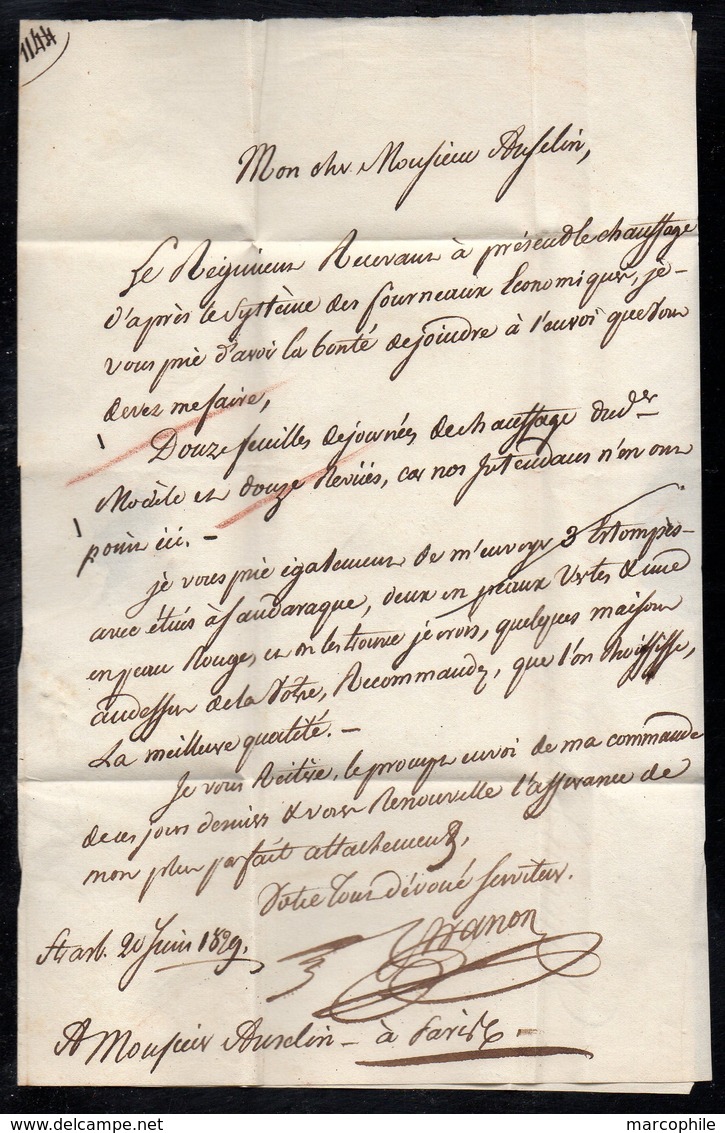 1144
Mon cher Monsieur Anselin,
Le Régiment Recevant à présent le chauffage
d'après le Système des fourneaux Economiques, je
vous prie d'avoir la bonté de joindre à l'envoi que vous
devez me faire,
Douze feuilles de journées de chauffage du der
Modèle et douze Revües, car nos Intendans n'en ont
point ici. -
je vous prie également de m'envoyer 3 Estompes
avec étuis à Sandaraque, deux en peaux Vertes & une
en peau Rouges, et on les trouve je crois, quelques maisons
audessus de la Votre, Recommandez, que l'on choisisse,
La meilleure qualité. -
Je vous Réitère, le prompt envoi de ma commande
de ces jours derniers & vous Renouvelle l'assurance de
mon plus parfait attachement,
Votre tout dévoué Serviteur.
Strasb. 20 Juin 1829.
A Monsieur Anselin - à Paris -
marcophile